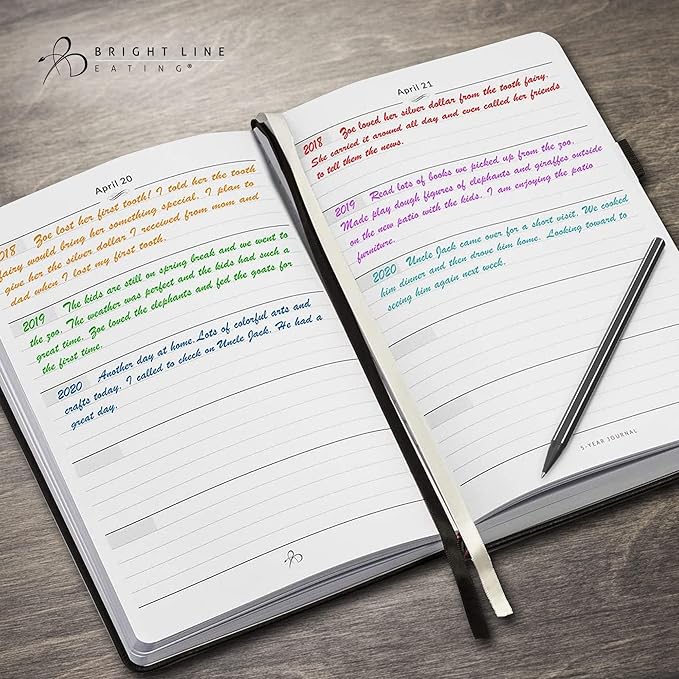 BRIGHT LINE
EATING®
April 20
2018 Zoe lost her first tooth! I told her the tooth
fairy would bring her something special. I plan to
give her the silver dollar I received from mom and
dad when I lost my first tooth.
2019 The kids are still on spring break and we went to
the zoo. The weather was perfect and the kids had such a
great time. Zoe loved the elephants and fed the goats for
the first time.
2020 Another day at home.Lots of colorful arts and
crafts today. I called to check on Uncle Jack. He had a
great day.
April 21
2018 Zoe loved her silver dollar from the tooth fairy.
She carried it around all day and even called her friends
to tell them the news.
2019 Read lots of books we picked up from the zoo.
Made play dough figures of elephants and giraffes outside
on the new patio with the kids. I am enjoying the patio
furniture.
2020 Uncle Jack came over for a short visit. We cooked
him dinner and then drove him home. Looking toward to
seeing him again next week.
5-YEAR JOURNAL